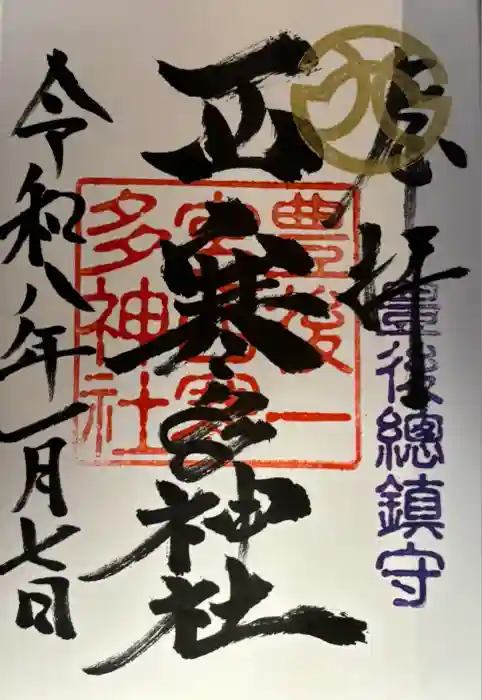 奉拝
豊後總鎮守
正寒多神社
豊後一
宮西寒
多神社
令和八年一月七日